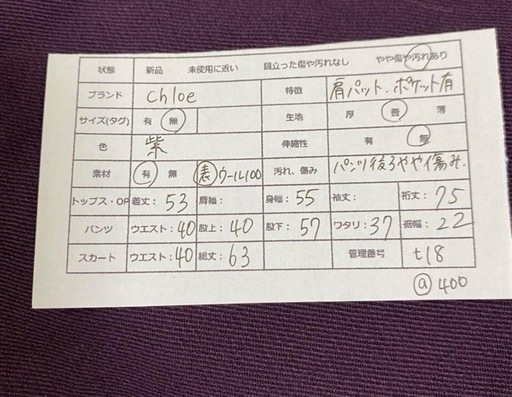 状態 新品 未使用に近い 目立った傷や汚れなし やや傷や汚れあり
ブランド chloe 特徴 肩パット、ポケット有
サイズ(タグ) 有 無 生地 厚 普 薄
色 紫 伸縮性 有 無
素材 有 無 表 ウール100 汚れ、傷み パンツ後ろやや傷み.
トップス・OP 着丈:53 肩幅: 身幅:55 袖丈: 裄丈:75
パンツ ウエスト:40 股上:40 股下:57 ワタリ:37 裾幅:22
スカート ウエスト:40 総丈:63 管理番号 t18
a 400